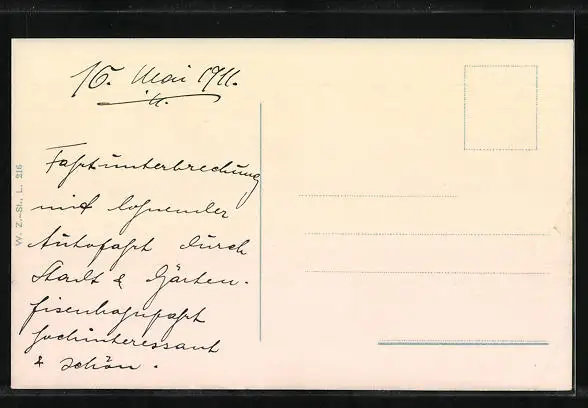 16. Mai 1911.
Fahrtunterbrechung
mit lohnender
Autofahrt durch
Stadt & Gärten.
Eisenbahnfahrt
hochinteressant
& schön.
W. Z.-St., L. 216